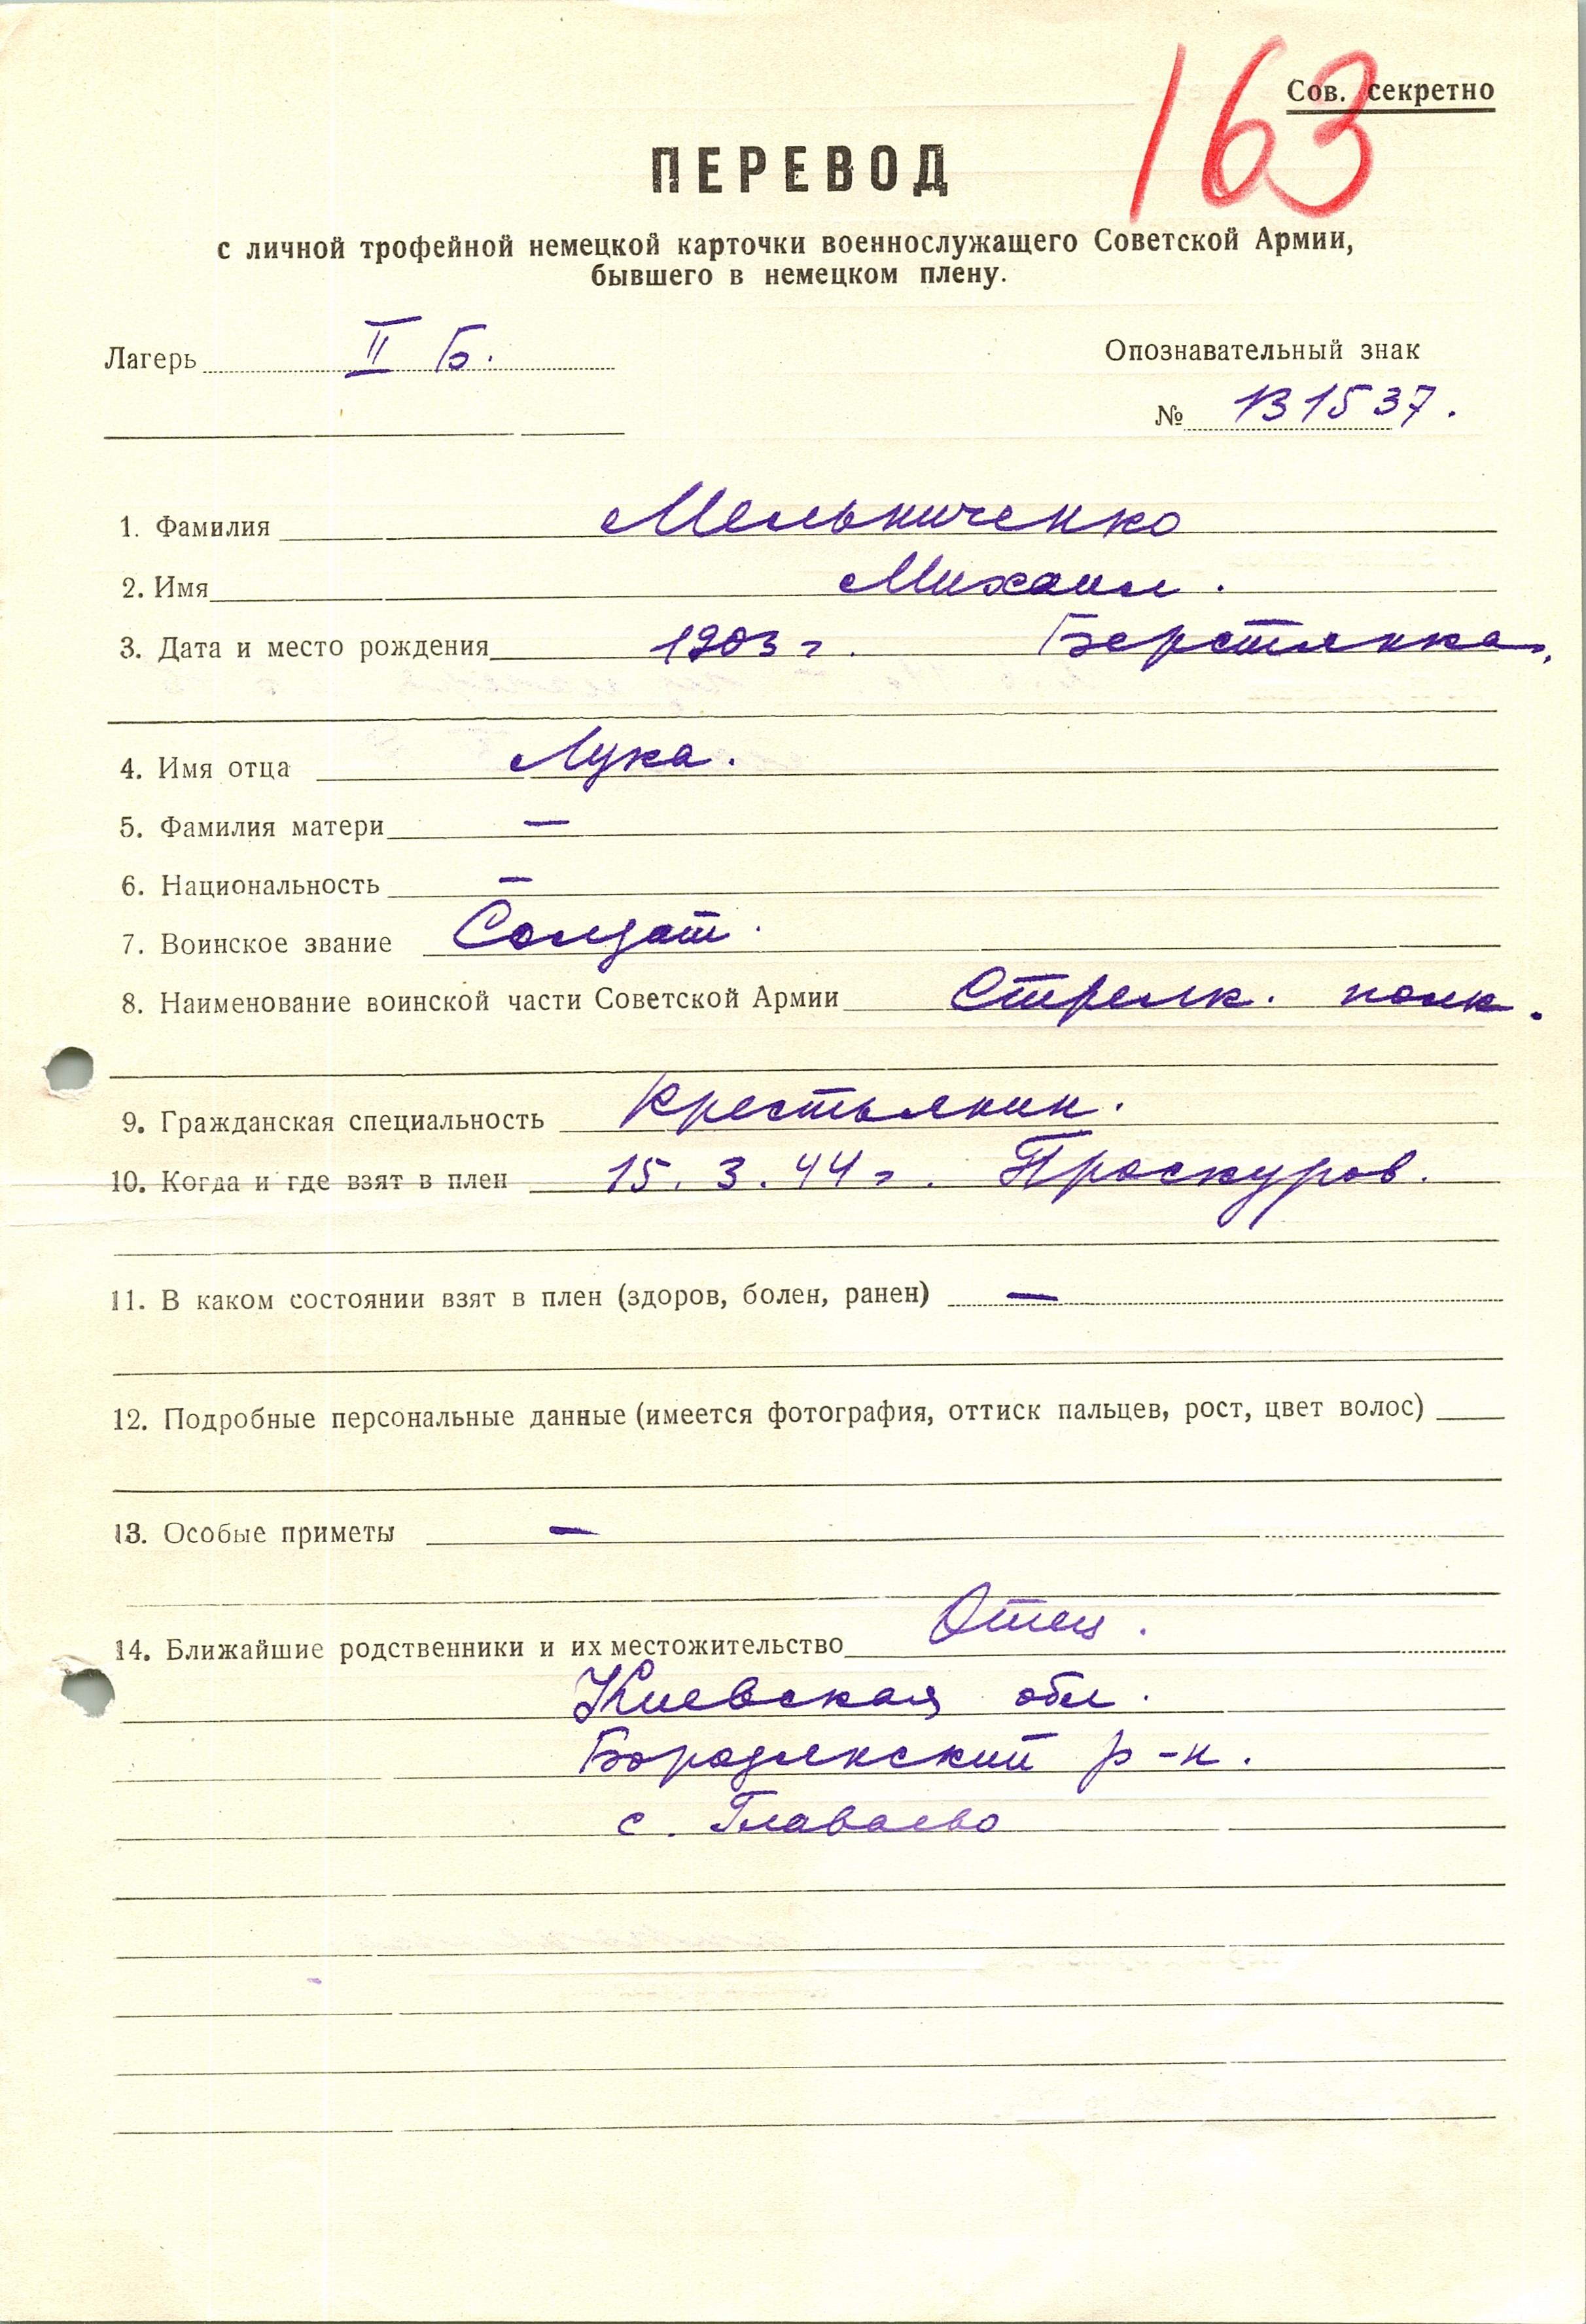 163
Сов. секретно
ПЕРЕВОД
с личной трофейной немецкой карточки военнослужащего Советской Армии,
бывшего в немецком плену.
Лагерь II Б.
Опознавательный знак
№ 131537.
1. Фамилия Мельниченко
2. Имя Михаил.
3. Дата и место рождения 1903 г. Берстянка,
4. Имя отца Лука.
5. Фамилия матери —
6. Национальность —
7. Воинское звание Солдат.
8. Наименование воинской части Советской Армии Стрелк. полк.
9. Гражданская специальность Крестьянин.
10. Когда и где взят в плен 15. 3. 44 г. Проскуров.
11. В каком состоянии взят в плен (здоров, болен, ранен) —
12. Подробные персональные данные (имеется фотография, оттиск пальцев, рост, цвет волос)
13. Особые приметы —
14. Ближайшие родственники и их местожительство Отец.
Киевская обл.
Бородянский р-н.
с. Главаево